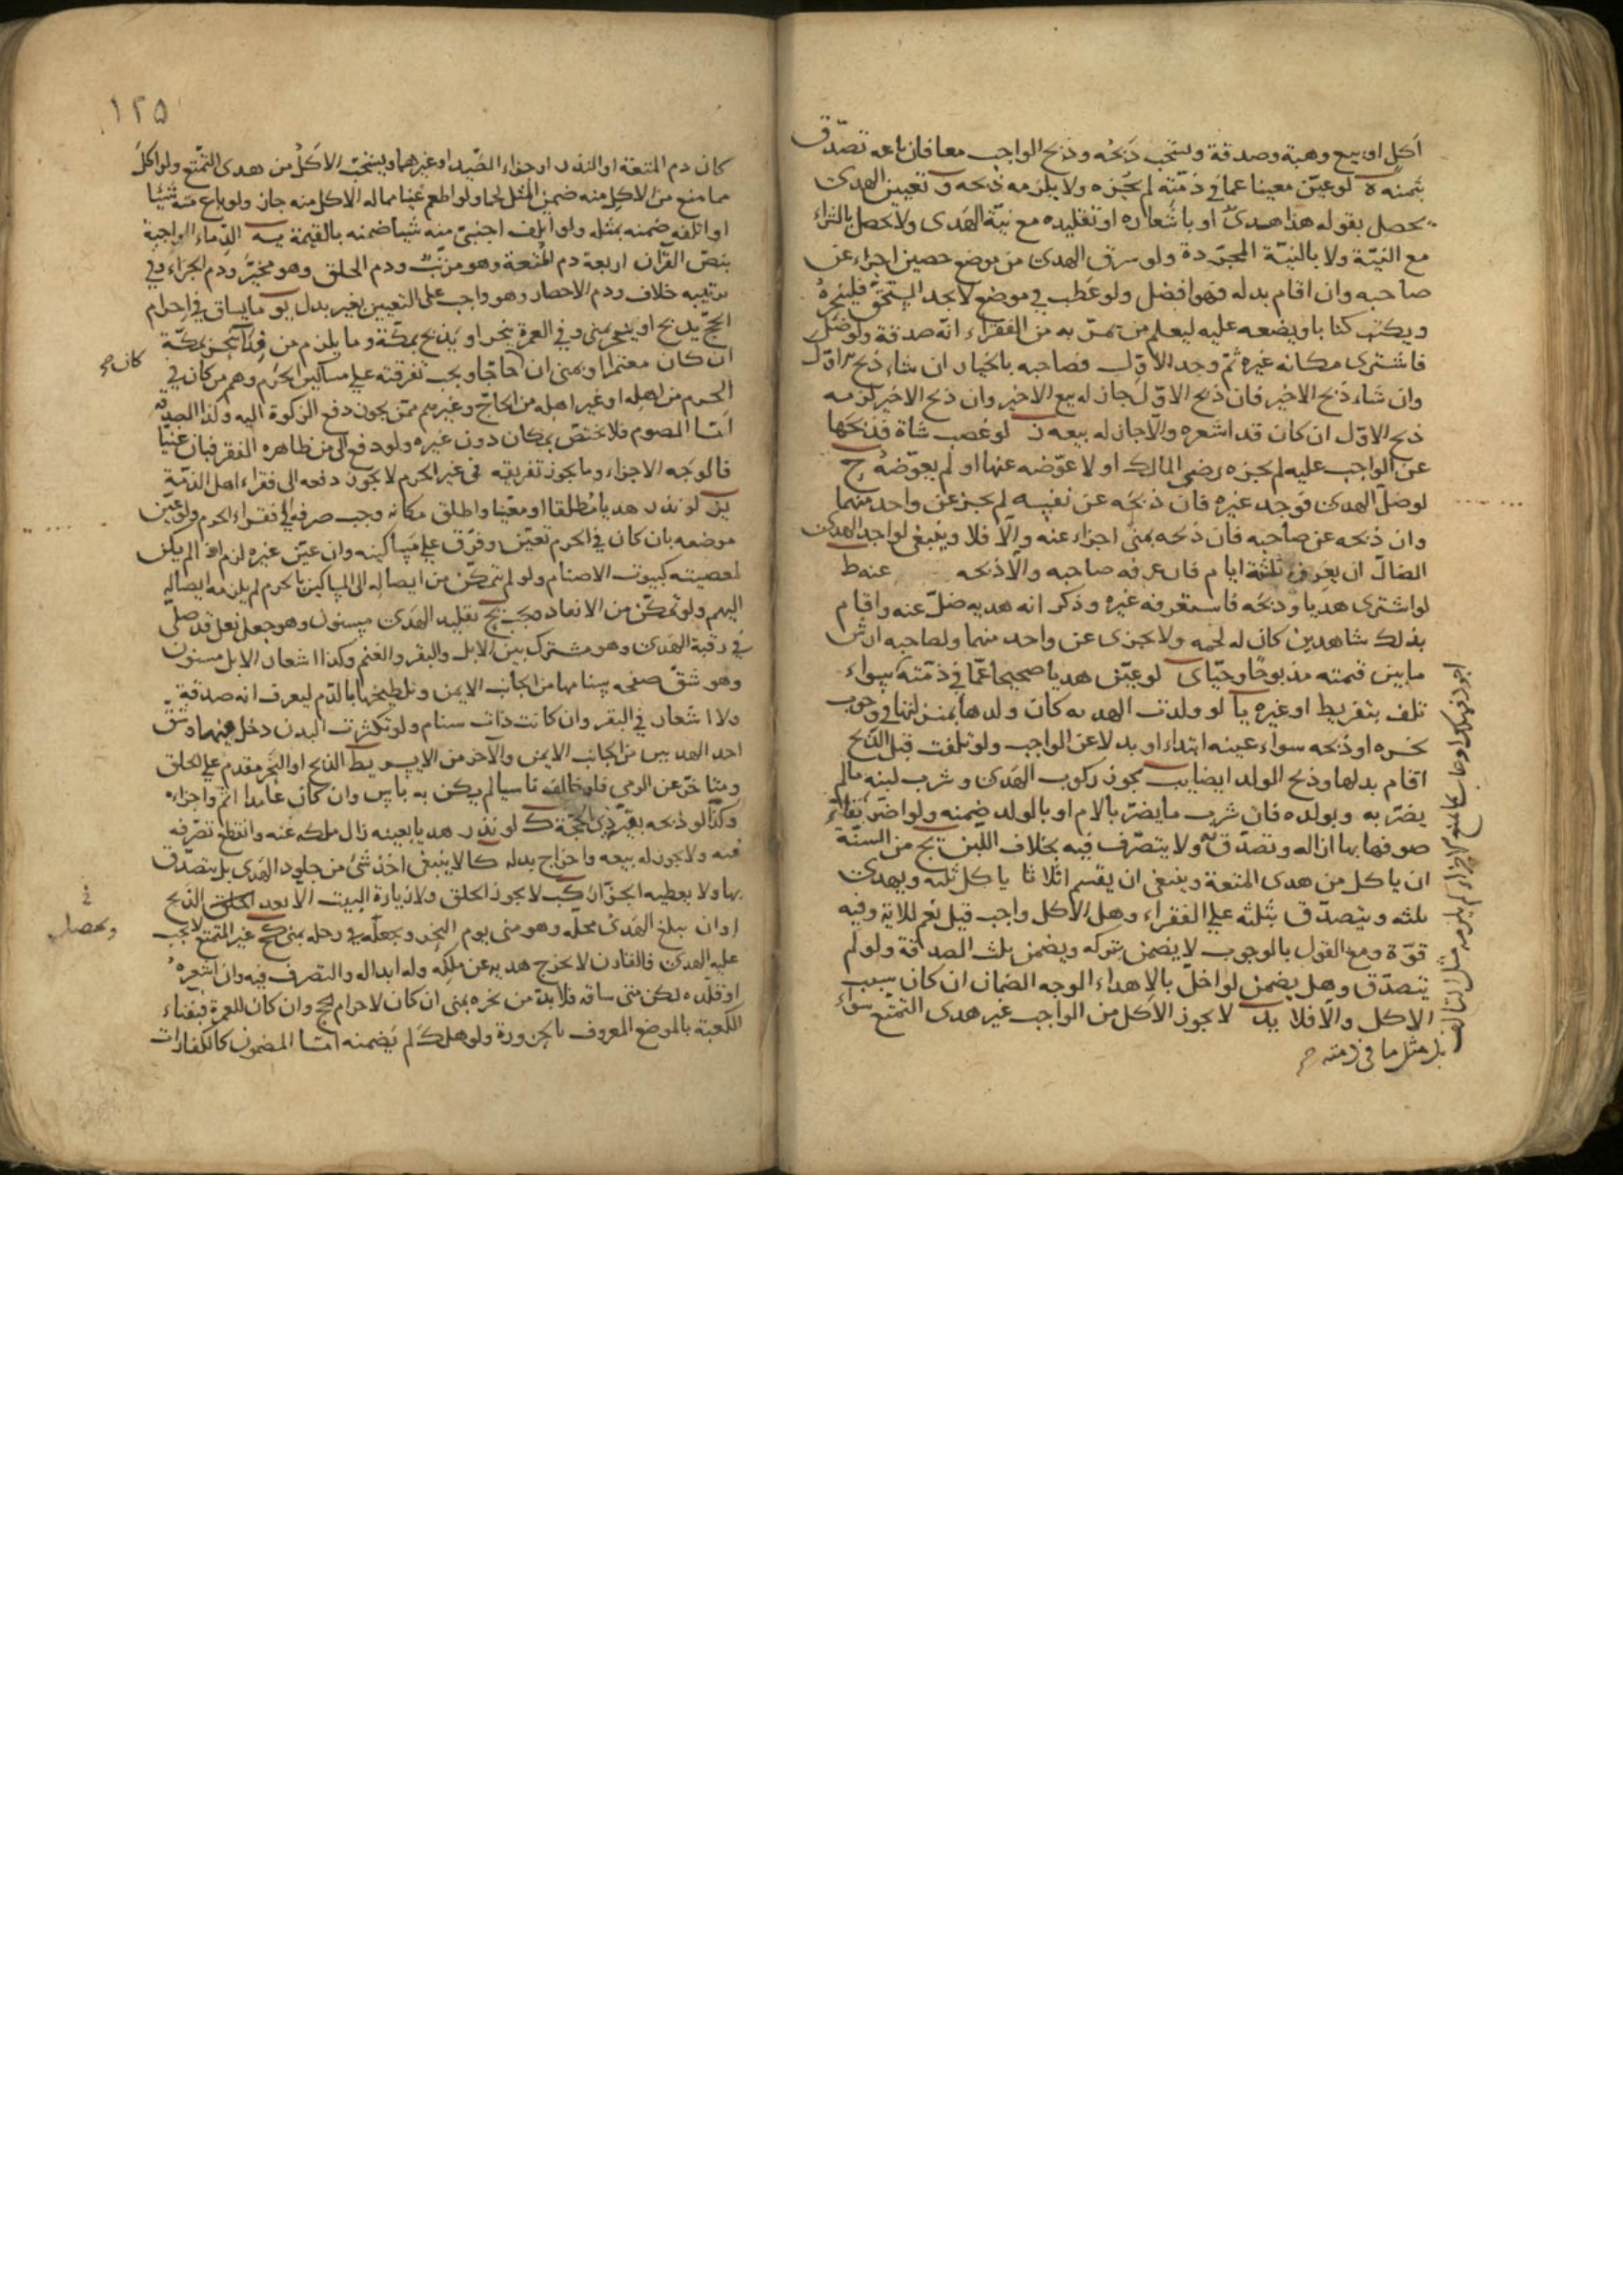 أكل او بيع وهبة وصدقة ويستحب ذبحه وذبح الواجب معا فان باعه تصدّق
بثمنه ه لو عيّن معينا عما في ذمّته لم يجزه ولا يلزمه ذبحه و تعيين الهدى
يحصل بقوله هذا هدىٌ او باشعاره او تقليده مع نيّة الهدى ولا تحصل بالشراء
مع النيّة ولا بالنيّة المجرّدة ولو سرق الهدى من موضع حصين اجزاء عن
صاحبه وان اقام بدله فهو افضل ولو عطب في موضع لا يجد المستحق فلينحره
ويكتب كتابا ويضعه عليه ليعلم من يمرّ به من الفقراء انّه صدقة ولو ضلّ
فاشترى مكانه غيره ثمّ وجد الاوّل فصاحبه بالخيار ان شاء ذبح الاوّل
وان شاء ذبح الاخير فان ذبح الاوّل جاز له بيع الاخير وان ذبح الاخير لزمه
ذبح الاوّل ان كان قد اشعره والّا جاز له بيعه ز لو غصب شاة فذبحها
عن الواجب عليه لم يجزه رضى المالك او لا عوّضه عنها او لم يعوّضه ح
لو ضلّ الهدى فوجد غيره فان ذبحه عن نفسه لم يجز عن واحد منهما
وان ذبحه عن صاحبه فان ذبحه بمنى اجزاء عنه والّا فلا وينبغى لواجد الهدى
الضالّ ان يعرفه ثلثة ايام فان عرفه صاحبه والّا ذبحه عنه ط
لو اشترى هديا وذبحه فاستعرفه غيره وذكر انه هديه ضلّ عنه واقام
بذلك شاهدين كان له لحمه ولا يجزى عن واحد منهما ولصاحبه ارش
ما بين قيمته مذبوحًا وحيّا ى لو عيّن هديا صحيحا عمّا في ذمّته سواء
تلف بتفريط او غيره يا لو ولدت الهديه كان ولدها بمنزلتها في وجوب
نحره او ذبحه سواء عينه ابتداء او بدلا عن الواجب ولو تلفت قبل الذبح
اقام بدلها وذبح الولد ايضا يب يجوز ركوب الهدى وشرب لبنه ما لم
يضرّ به وبولده فان شرب ما يضرّ بالام او بالولد ضمنه ولو اضرّ بقاء
صوفها بها ازاله وتصدّق به ولا يتصرّف فيه بخلاف اللبن يج من السنّة
ان ياكل من هدى المتعة وينبغى ان يقسم اثلاثا ياكل ثلثه ويهدى
ثلثه ويتصدّق بثلثه على الفقراء وهل الاكل واجب قيل نعم للاية وفيه
قوّة ومع القول بالوجوب لا يضمن بتركه ويضمن ثلث الصداقة ولو لم
يتصدّق وهل يضمن لو اخلّ بالاهداء الوجه الضمان ان كان بسبب
الاكل والّا فلا يد لا يجوز الاكل من الواجب غير هدى التمتع سواء
بل مثل ما في ذمته
١٢٥
كان دم المتعة او النذر او جزاء الصّيد او غيرهما ويستحبّ الاكل من هدى التمتّع ولو اكل
مما منع من الاكل منه ضمن المثل لحما ولو اطعم غنيا مما له الاكل منه جاز ولو باع منه شيئا
او اتلفه ضمنه بمثله ولو اتلف اجنبىّ منه شيأ ضمنه بالقيمة يه الدّماء الواجبة
بنصّ القرآن اربعة دم المتعة وهو مرتّب ودم الحلق وهو مخيّر ودم الجزاء وفي
ترتيبه خلاف ودم الاحصار وهو واجب على التعيين بغير بدل يو ما يساق في احرام
الحجّ يذبح او ينحر بمنى وفي العمرة ينحر او يذبح بمكّة وما يلزم من فداء ينحر بمكّة
ان كان معتمرا وبمنى ان كان حاجّا ويجب تفرقته على مساكين الحرم وهم من كان في
الحرم من اهله او غير اهله من الحاجّ وغيرهم ممّن يجوز دفع الزكوة اليه وكذا الصدقة
امّا الصوم فلا يختصّ بمكان دون غيره ولو دفع الى من ظاهره الفقر فبان غنيّا
فالوجه الاجزاء وما يجوز تفريقه في غير الحرم لا يجوز دفعه الى فقراء اهل الذمّة
يز لو نذر هديا مطلقا او معيّنا واطلق مكانه وجب صرفه في فقراء الحرم ولو عيّن
موضعه بان كان في الحرم تعيّن وفرّق على مساكينه وان عيّن غيره لزم اذ الم يكن
لمعصيته كبيوت الاصنام ولو لم يتمكّن من ايصاله الى المساكين بالحرم لم يلزمه ايصاله
اليهم ولو تمكّن من الانفاد وجب يح تقليد الهدى مسنون وهو جعل نعل قد صلّى
في رقبة الهدى وهو مشترك بين الابل والبقر والغنم وكذا اشعار الابل مسنون
وهو شقّ صفحه سنامها من الجانب الايمن وتلطيخها بالدّم ليعرف انه صدقة
ولا اشعار في البقر وان كانت ذات سنام ولو تكثرت البدن دخل بينهما وشقّ
احد الهديين من الجانب الايمن والآخر من الايسر يط الذبح او النحر مقدم على الحلق
ومتاخّر عن الرمى فلو خالف ناسيا لم يكن به باس وان كان عامدا اثم واجزاءه
وكذا لو ذبحه بقيّة ذى الحجّة ك لو نذر هديا بعينه زال ملكه عنه وانقطع تصرّفه
فيه ولا يجوز له بيعه واخراج بدله كا لا ينبغى اخذ شئ من جلود الهدى بل يتصدّق
بها ولا يعطيه الجزّار كب لا يجوز الحلق ولا زيارة البيت الّا بعد الذبح
او ان يبلغ الهدى محلّه وهو منى يوم النحر ويجعله في رحله بمنى كج غير المتمتع لا يجب
عليه الهدى فالقارن لا يخرج هديه عن ملكه وله ابداله والتصرف فيه وان اشعره
او قلّده لكن متى ساقه فلا بدّ من نحره بمنى ان كان لاحرام الحج وان كان للعمرة فبفناء
الكعبة بالموضع المعروف بالحزورة ولو هلك لم يضمنه امّا المضمون كالكفارات
كان
ويحصل